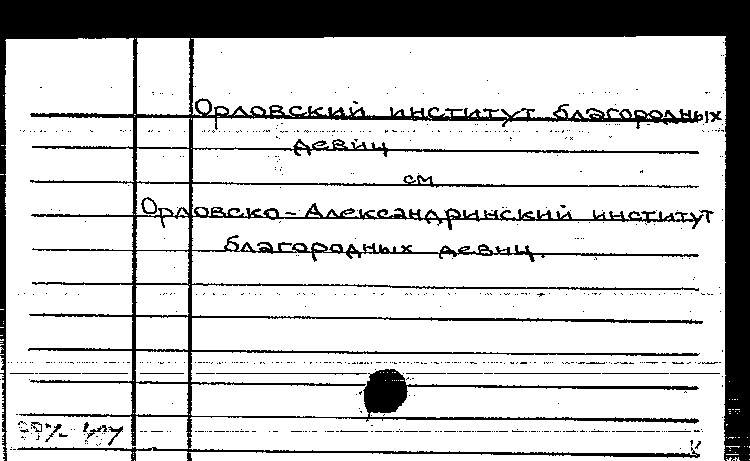 Орловский институт благородных
девиц
см
Орловско-Александринский институт
благородных девиц.